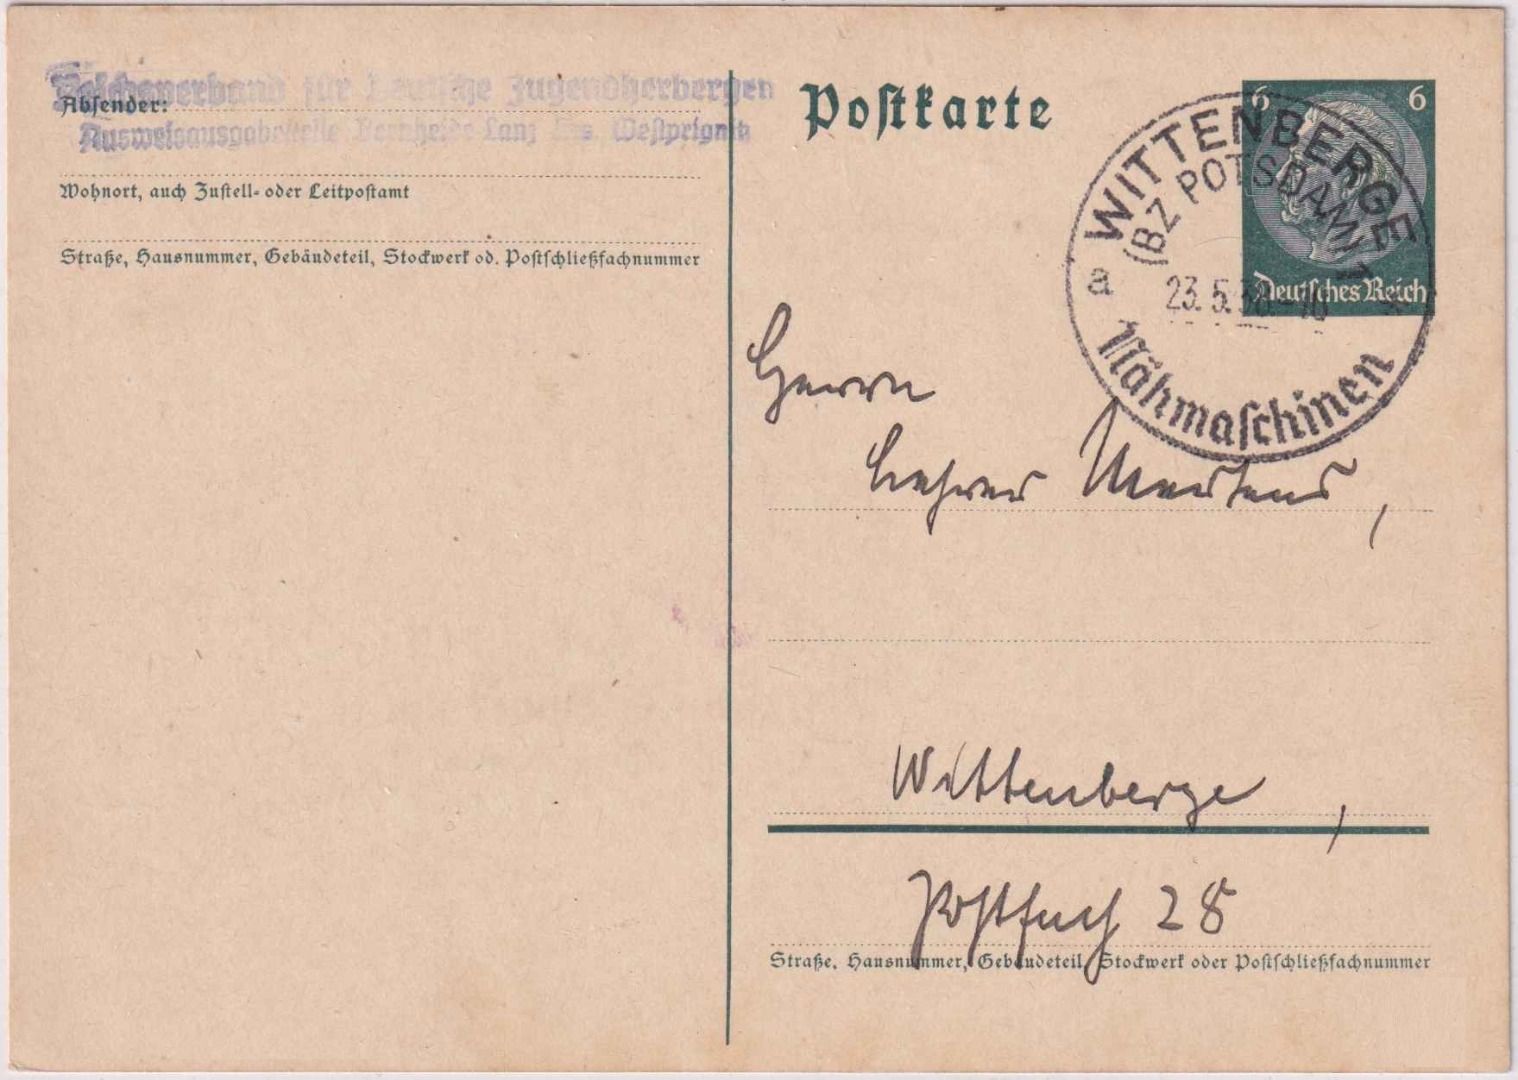 Reichsverband für Deutsche Jugendherbergen
Absender:
Ausweisausgabestelle Lanz Krs. Westprignitz
Wohnort, auch Zustell- oder Leitpostamt
Straße, Hausnummer, Gebäudeteil, Stockwerk od. Postschließfachnummer
Postkarte
6 6
Deutsches Reich
WITTENBERGE
(BZ POTSDAM) 1
a 23.5.38.-10 *
Nähmaschinen
Herrn
Lehrer Mertens,
Wittenberge,
Postfach 28
Straße, Hausnummer, Gebäudeteil, Stockwerk oder Postschließfachnummer